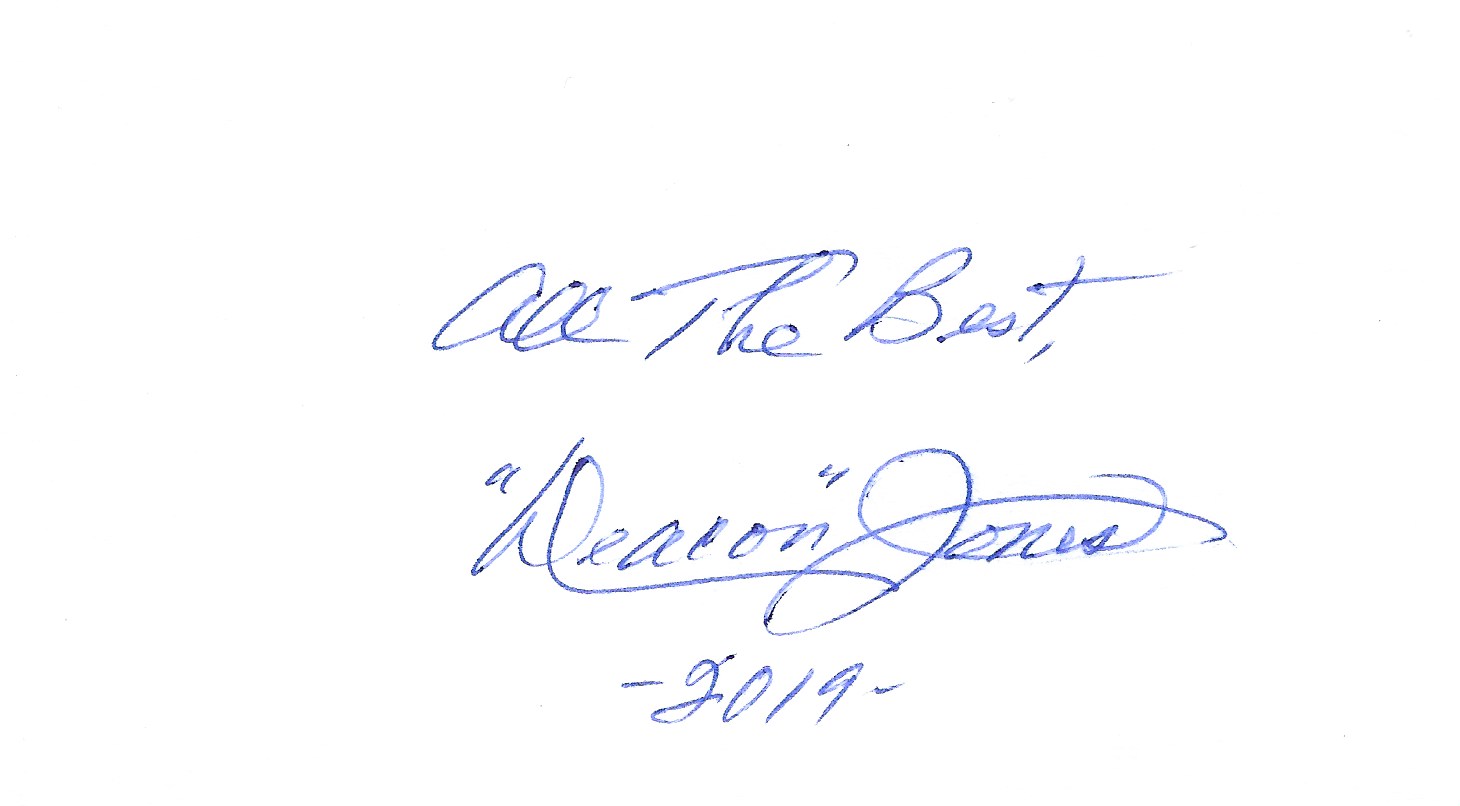 All The Best,
"Deacon" Jones
-2019-